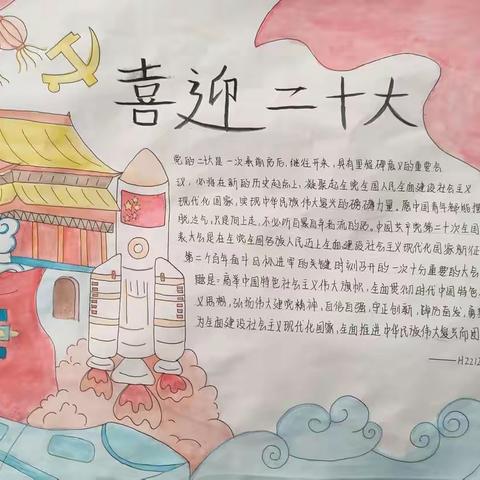 喜迎二十大
党的二十大是一次承前启后，继往开来，具有里程碑意义的重要会
议，必将在新的历史起点上，凝聚起全党全国人民全面建设社会主义
现代化国家，实现中华民族伟大复兴的磅礴力量。愿中国青年都能摆
脱冷气，只是向上走，不必听自暴自弃者流的话。中国共产党第二十次全国
表大会是在全党全国各族人民迈上全面建设社会主义现代化国家新征
第二个百年奋斗目标进军的关键时刻召开的一次十分重要的大会
题是：高举中国特色社会主义伟大旗帜，全面贯彻 时代中国特色
义思想，弘扬伟大建党精神，自信自强，守正创新，踔厉奋发，勇
为全面建设社会主义现代化国家，全面推进中华民族伟大复兴而团
——H2212